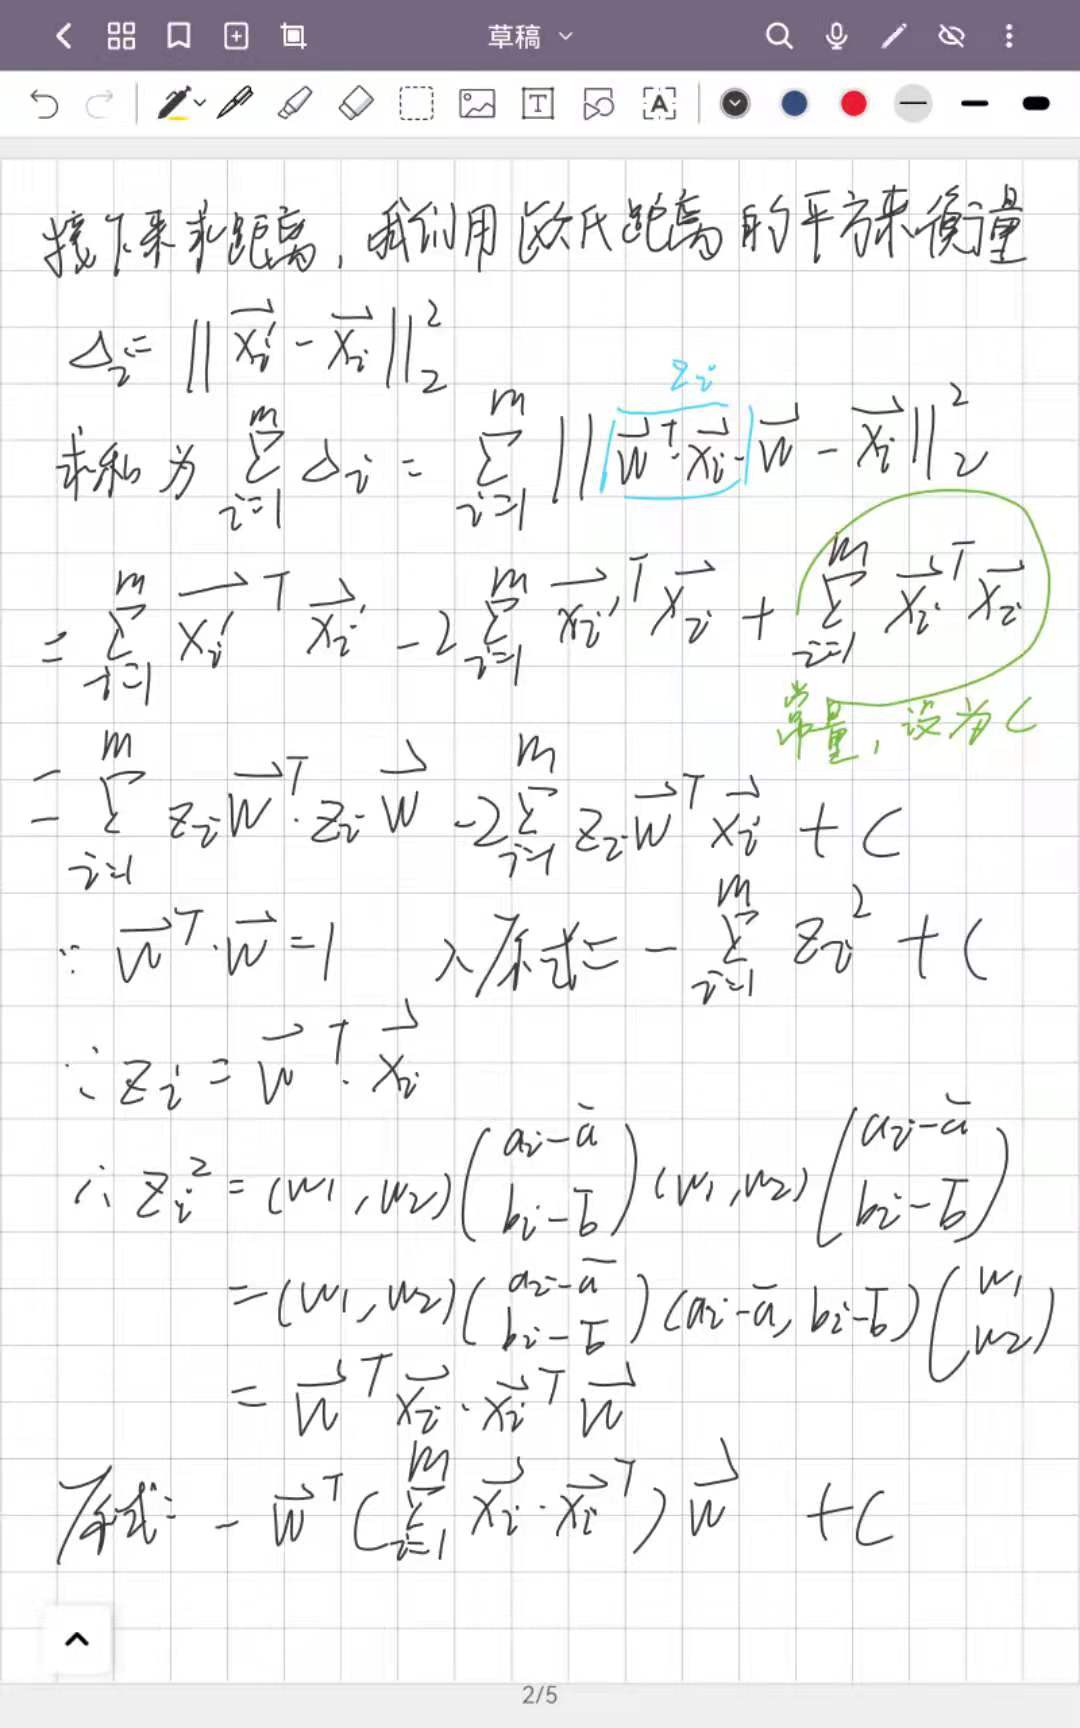 草稿
T
A
接下来求距离,我们用欧氏距离的平方来衡量
Δi = ||x⃗i' - x⃗i||₂²
zi
求和为 Σ_{i=1}^{m} Δi = Σ_{i=1}^{m} ||w⃗ᵀ·x⃗i·w⃗ - x⃗i||₂²
= Σ_{i=1}^{m} x⃗i'ᵀ x⃗i' - 2 Σ_{i=1}^{m} x⃗i'ᵀ x⃗i + Σ_{i=1}^{m} x⃗iᵀ x⃗i
常量,设为C
= Σ_{i=1}^{m} zi w⃗ᵀ·zi w⃗ - 2 Σ_{i=1}^{m} zi w⃗ᵀ x⃗i + C
∵ w⃗ᵀ·w⃗ = 1 ∴原式 = - Σ_{i=1}^{m} zi² + C
∵ zi = w⃗ᵀ·x⃗i
∴ zi² = (w1, w2) (ai - a̅ bi - b̅) (w1, w2) (ai - a̅ bi - b̅)
= (w1, w2) (ai - a̅ bi - b̅) (ai - a̅, bi - b̅) (w1 w2)
= w⃗ᵀ x⃗i · x⃗iᵀ w⃗
原式 = - w⃗ᵀ (Σ_{i=1}^{m} x⃗i · x⃗iᵀ) w⃗ + C
2/5